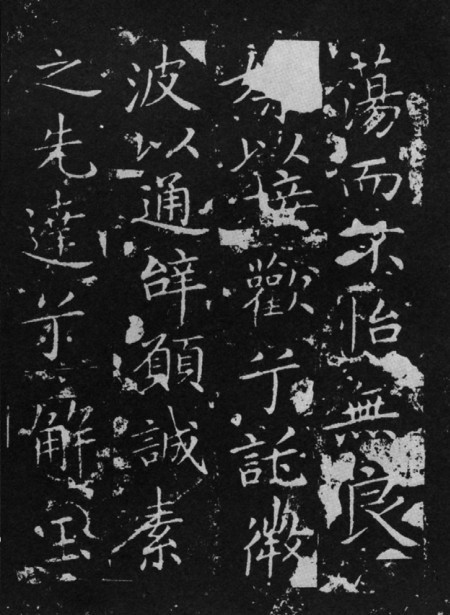 蕩而不怡無良
以接歡兮託微
波以通辭願誠素
之先達兮解玉